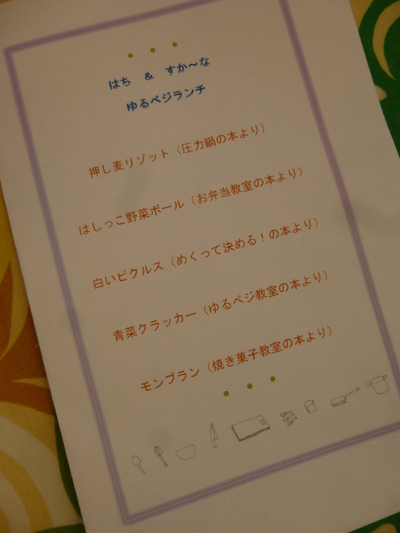 はち ＆ すか〜な
ゆるベジランチ
押し麦リゾット（圧力鍋の本より）
はしっこ野菜ボール（お弁当教室の本より）
白いピクルス（めくって決める！の本より）
青菜クラッカー（ゆるベジ教室の本より）
モンブラン（焼き菓子教室の本より）